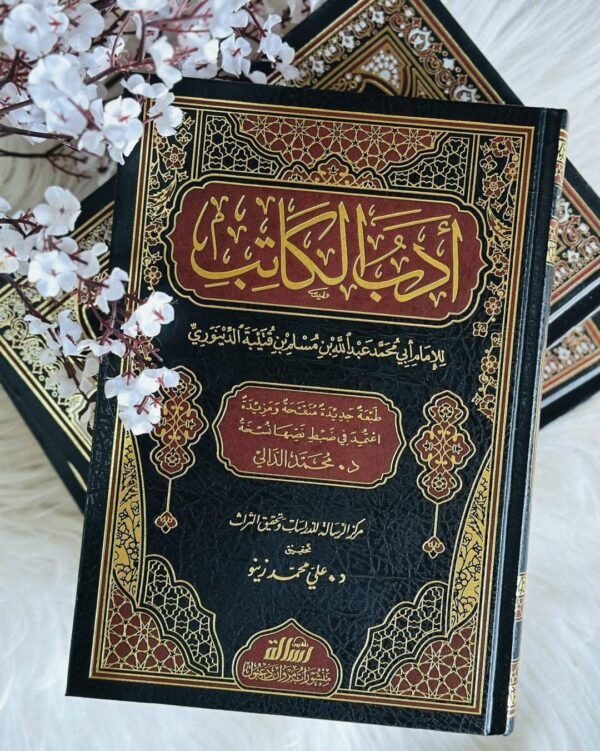 أَدَبُ الكَاتِبِ
لِلإِمَامِ أَبِي مُحَمَّد عَبْدِ اللَّهِ بْنِ مُسْلِمِ بْنِ قُتَيْبَةَ الدِّيْنَوَرِيِّ
طَبْعَةٌ جَدِيْدَةٌ مُنَقَّحَةٌ وَمَزِيْدَةٌ
اعْتُمِدَ فِي ضَبْطِ نَصِّهَا نُسْخَةُ
د. مُحَمَّد الدَّالِي
مركز الرسالة للدراسات وتحقيق التراث
تحقيق
د. علي محمد زينو
رسالة